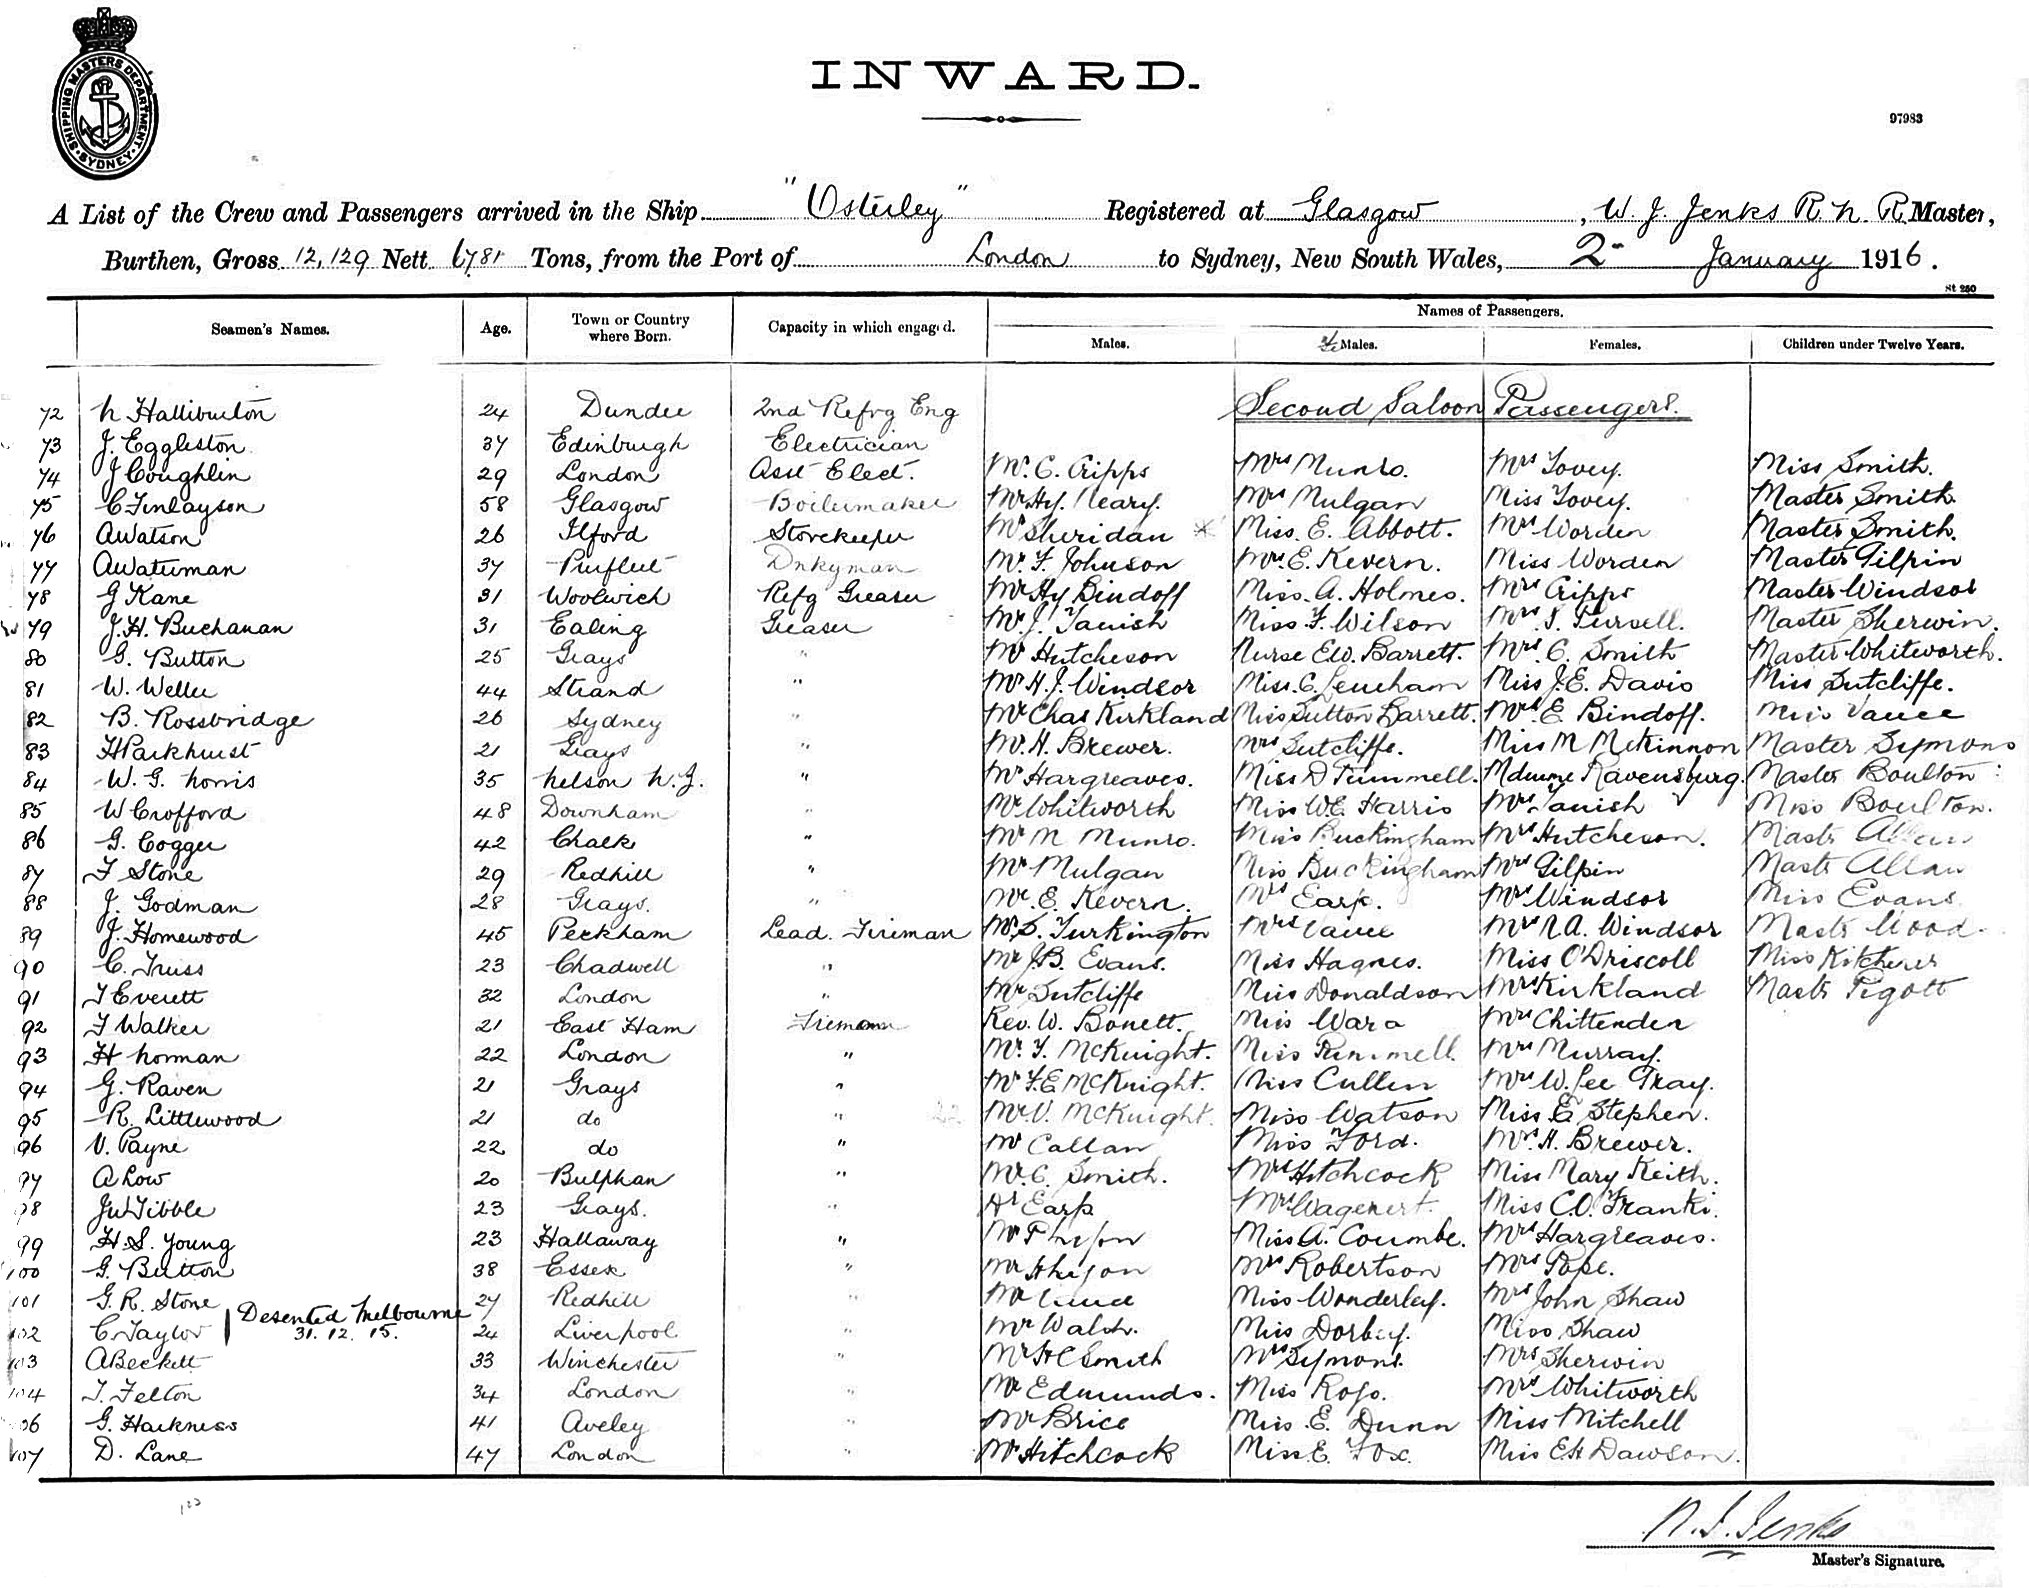 SHIPPING MASTERS DEPARTMENT
SYDNEY
INWARD.
97983
A List of the Crew and Passengers arrived in the Ship "Osterley" Registered at Glasgow, W. J. Jenks R. N. R. Master,
Burthen, Gross 12,129 Nett 6781 Tons, from the Port of London to Sydney, New South Wales, 2 January 1916.
St 250
Names of Passengers.
Seamen's Names. Age. Town or Country where Born. Capacity in which engaged. Males. Males. Females. Children under Twelve Years.
72 N Halliburton 24 Dundee 2nd Refrg Eng Second Saloon Passengers.
73 J. Eggleston 37 Edinburgh Electrician
74 J Coughlin 29 London Asst Elect. Mr. C. Cripps Mrs Munro. Mrs Tovey. Miss Smith.
75 C Finlayson 58 Glasgow Boilermaker Mr Hy. Neary. Mrs Mulgan Miss Tovey. Master Smith.
76 A Watson 26 Ilford Storekeeper Mr Sheridan Miss. E. Abbott. Mrs Worden Master Smith.
77 A Waterman 37 Purfleet Dnkyman Mr. F. Johnson Mrs. E. Kevern. Miss Worden Master Gilpin
78 G Kane 31 Woolwich Refg Greaser Mr Hy Bindoff Miss. A. Holmes. Mrs Cripps Master Windsor
79 J. H. Buchanan 31 Ealing Greaser Mr. J. Tanish Miss F. Wilson Mrs. S. Pursell. Master Sherwin.
80 G. Button 25 Grays " Mr Hutcheson Nurse E.W. Barrett. Mrs. C. Smith Master Whitworth.
81 W. Weller 44 Strand " Mr H. J. Windsor Miss. C. Miss J. E. Davis Miss Sutcliffe.
82 B. Rossbridge 26 Sydney " Mr Chas Kirkland Miss Sutton Barrett. Mrs. E. Bindoff. Miss Vance
83 H Parkhurst 21 Grays " Mr. H. Brewer. Mrs Sutcliffe. Miss M McKinnon Master Symons
84 W. G. Norris 35 Nelson N.Z. " Mr Hargreaves. Miss D Pummell. Mdme Ravensburg. Master Boulton
85 W Crofford 48 Downham " Mr Whitworth Miss W.E. Harris Mrs Tanish Miss Boulton.
86 G. Cogger 42 Chalk " Mr M Munro. Miss Buckingham Mrs Hutcheson. Mastr Allan
87 F Stone 29 Redhill " Mr Mulgan Miss Buckingham Mrs Gilpin Mastr Allan
88 J. Godman 28 Grays. " Mr. E. Kevern. Mrs Earp. Mrs Windsor Miss Evans
89 J. Homewood 45 Peckham Lead. Fireman Mr. S. Turkington Mrs Vance Mrs N A. Windsor Mastr Wood.
90 C. Truss 23 Chadwell " Mr J.B. Evans. Miss Hagnes. Miss O'Driscoll Miss Kitchener
91 J Everett 32 London " Mr Sutcliffe Miss Donaldson Mrs Kirkland Mastr Pigott
92 F Walker 21 East Ham Fireman Rev. W. Bonett. Miss Ward Mrs Chittenden
93 H Norman 22 London " Mr. T. McKnight. Miss Pummell. Mrs Murray.
94 G. Raven 21 Grays " Mr F. E McKnight. Miss Cullen Mrs W. Lee Gray.
95 R. Littlewood 21 do " Mr V. McKnight. Miss Watson Miss E Stephen.
96 V. Payne 22 do " Mr Callan Miss Ford. Mrs. H. Brewer.
97 A Low 20 Bulphan " Mr. C. Smith. Mrs Hitchcock Miss Mary Keith.
98 Tibble 23 Grays. " Dr Earp Mrs Wagenert. Miss C.O. Franki.
99 H. S. Young 23 Hallaway " Miss A. Coumbe. Mrs Hargreaves.
100 G. Button 38 Essex " Mrs Robertson Mrs Pope.
101 G. R. Stone 27 Redhill " Mr Miss Wonderley. Mrs John Shaw
Deserted Melbourne
31. 12. 15.
102 C. Taylor 24 Liverpool " Mr Walsh. Miss Dorbey. Miss Shaw
103 A Beckett 33 Winchester " Mr H C Smith Mrs Symons. Mrs Sherwin
104 T. Felton 34 London " Mr Edmunds. Miss Ross. Mrs Whitworth
106 G. Harkness 41 Aveley " Mr Brice Miss. E. Dunn Miss Mitchell
107 D. Lane 47 London " Mr Hitchcock Miss E. Fox. Miss E H Dawson.
W. J. Jenks
Master's Signature.